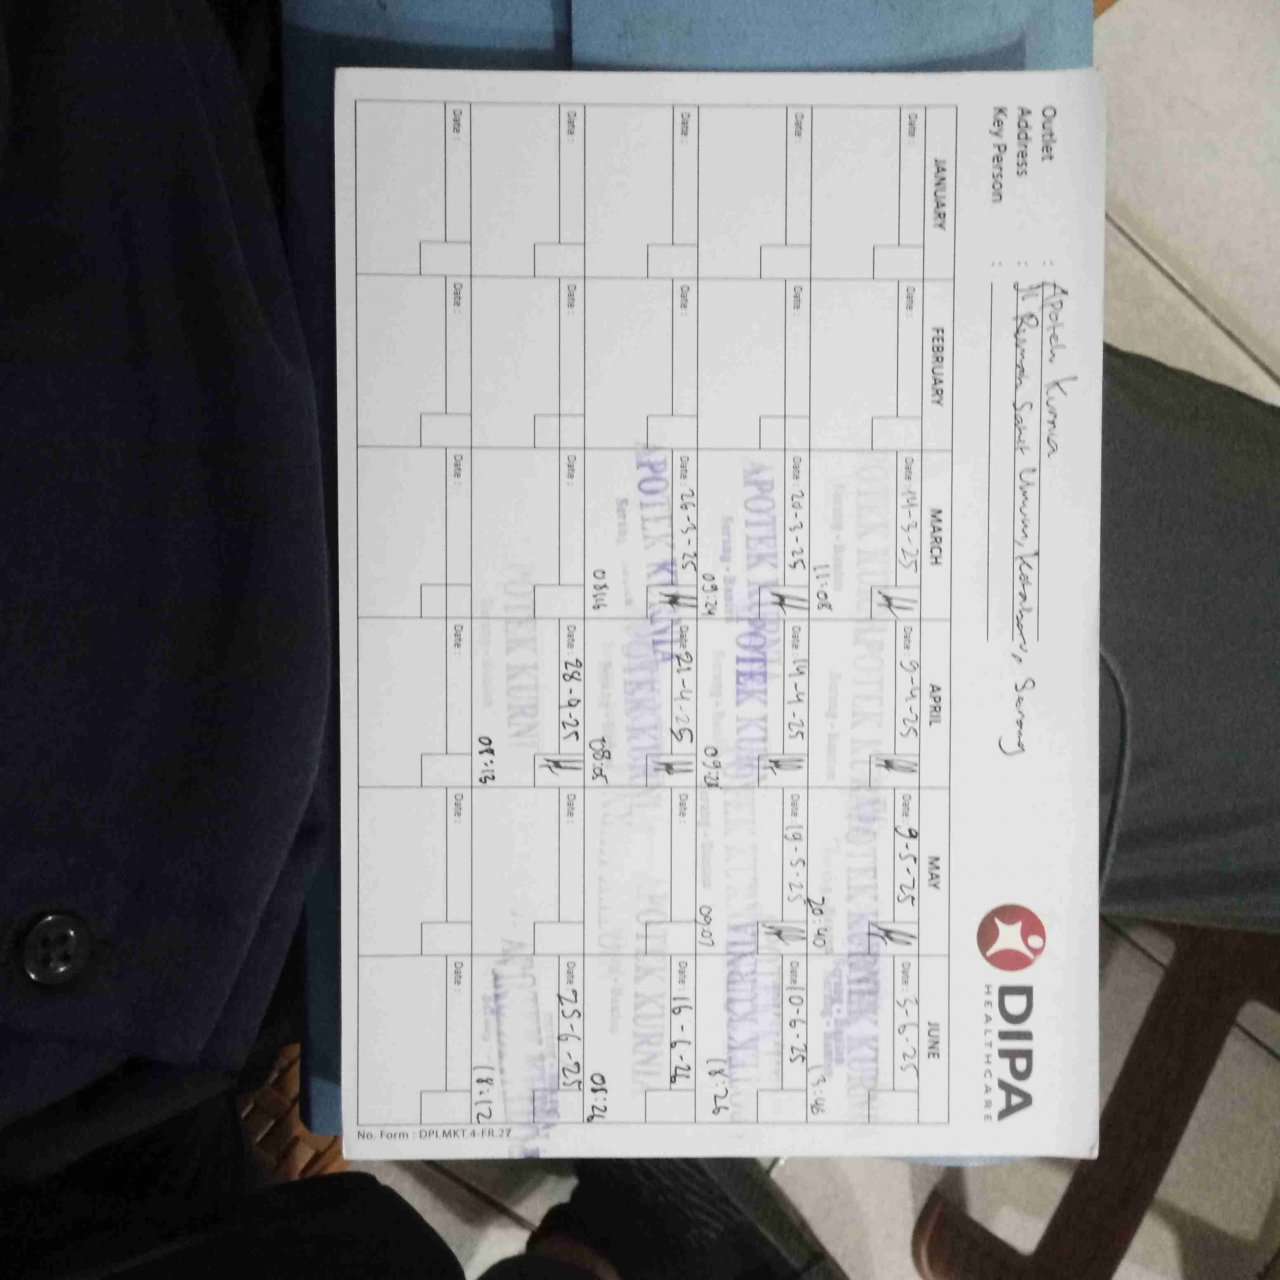 Outlet : Apotek Kurnia
Address : Jl Rumah Sakit Umum, Kotabaru, Serang
Key Person :
DIPA
HEALTHCARE
JANUARY FEBRUARY MARCH APRIL MAY JUNE
Date : Date : Date : 14-3-25 Date : 9-4-25 Date : 9-5-25 Date : 3-6-25
APOTEK KURNIA
11:08 20:40 13:46
Date : Date : Date : 20-3-25 Date : 14-4-25 Date : 19-5-25 Date : 10-6-25
APOTEK KURNIA
Serang - Banten
09:24 09:28 09:07 18:26
Date : Date : Date : 26-3-25 Date : 21-4-25 Date : Date : 16-6-26
APOTEK KURNIA
08:16 08:05 08:26
Date : Date : Date : Date : 28-4-25 Date : Date : 25-6-25
POTEK KURNI
08:13 18:12
Date : Date : Date : Date : Date : Date :
No. Form : DPI.MKT.4-FR.27